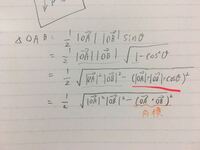 △OAB = 1/2 |OA→| |OB→| sinθ
= 1/2 |OA→| |OB→| √(1−cos²θ)
= 1/2 √(|OA→|²|OB→|² − (|OA→|·|OB→|·cosθ)²)
= 1/2 √(|OA→|²|OB→|² − (OA→·OB→)²)
内積